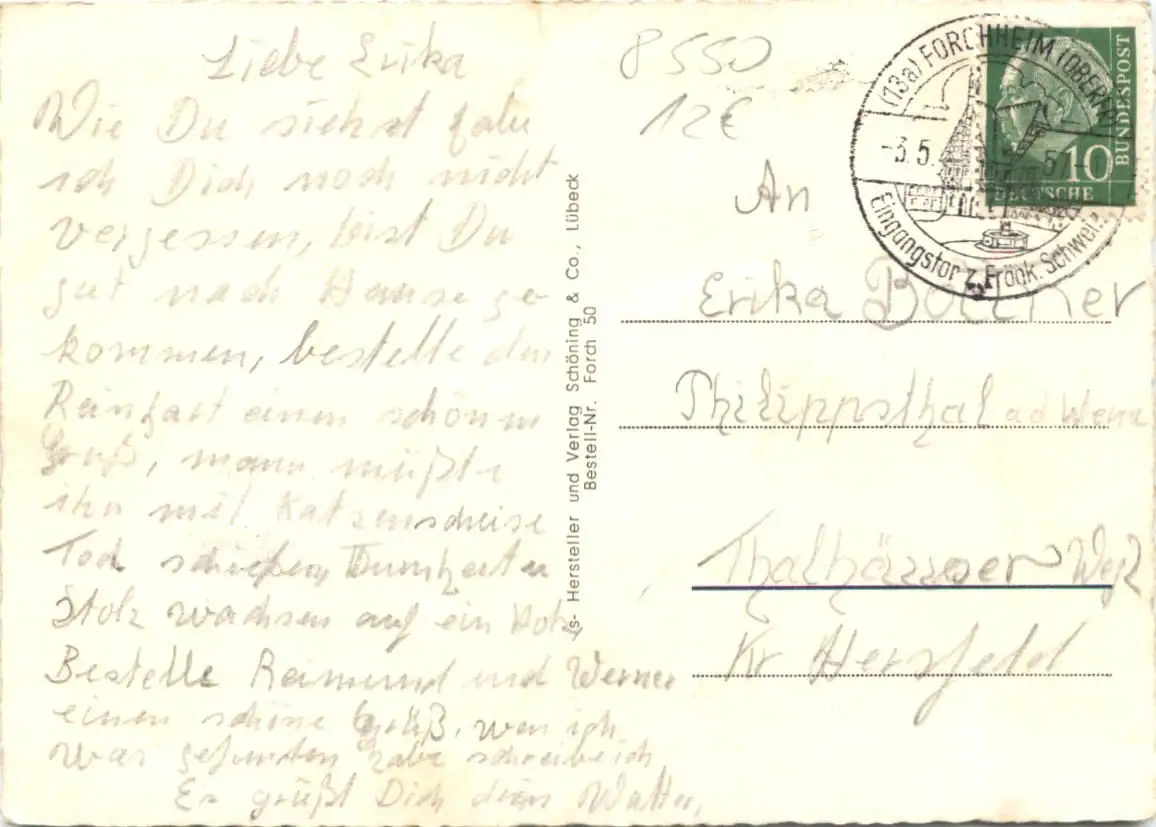 Liebe Erika
Wie Du siehst habe
ich Dich noch nicht
vergessen, bist Du
gut nach Hause ge
kommen, bestelle den
einen schönen
Gruß, mann müßte
ihn mit Katzenscheise
Tod schießen, Dummheit u
Stolz wachsen auf ein Holz
Bestelle Reimund und Werner
einen schöne Gruß, wen ich
was gefunden habe schreibe ich
Es grüßt Dich dein Walter,
8550
12€
(13a) FORCHHEIM (OBERFR
-3.5.57-
Eingangstor z. Fränk. Schweiz
BUNDESPOST
10
DEUTSCHE
An
Erika
Philippsthal ad Werra
Weg 2
Kr Hersfeld
Hersteller und Verlag Schöning & Co., Lübeck
Bestell-Nr. Forch 50